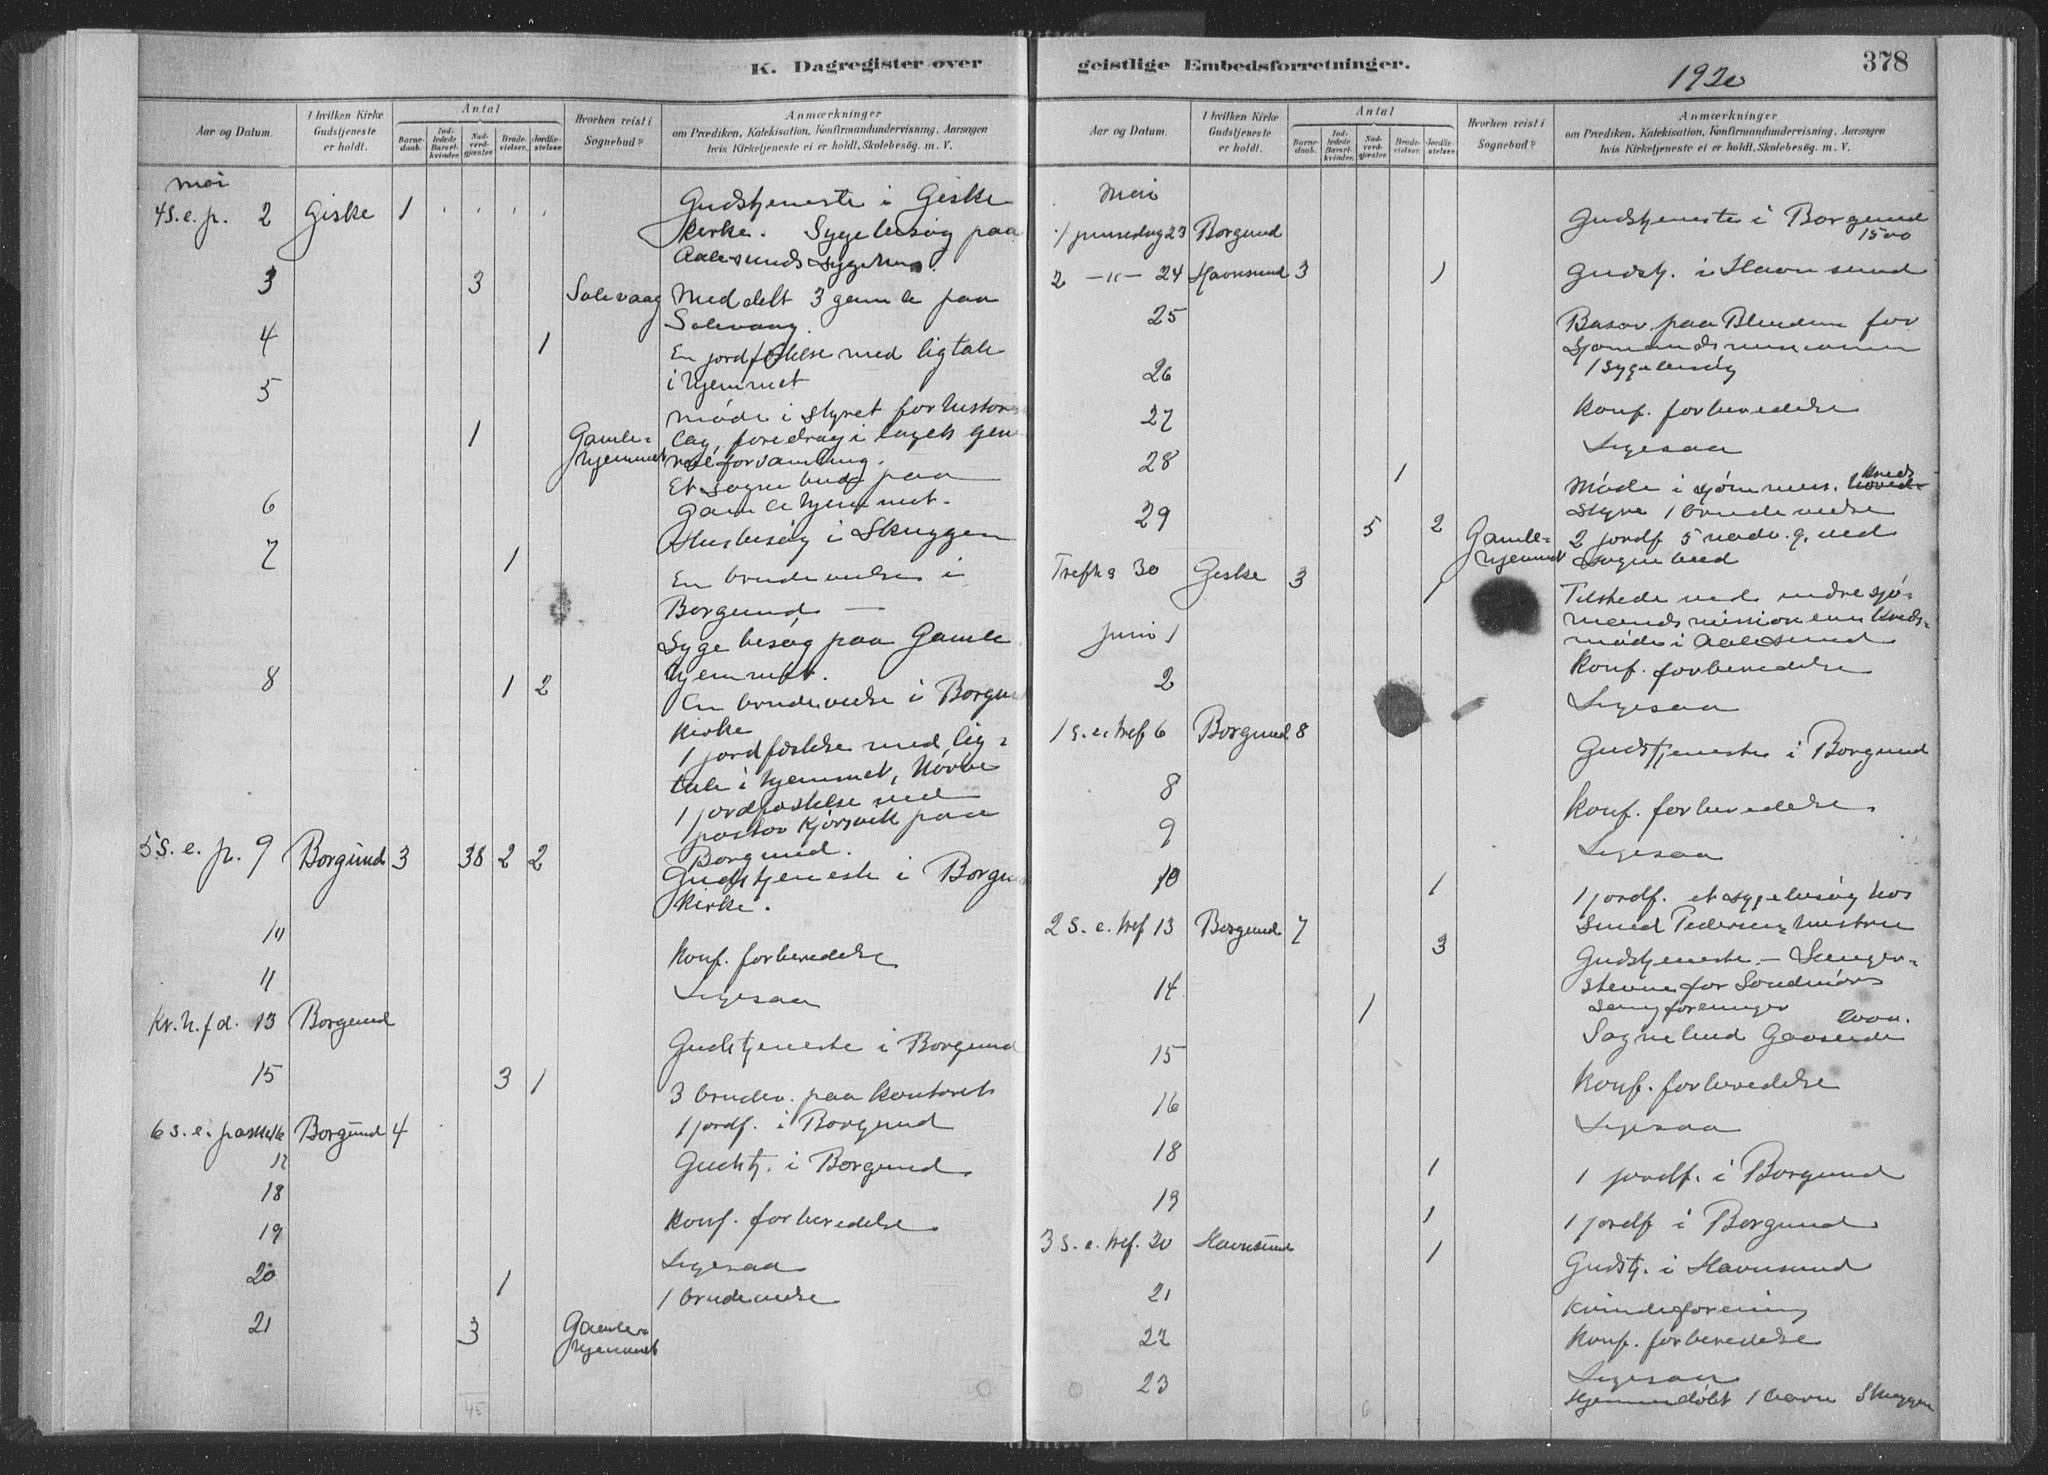 K. Dagregister over
Aar og Datum.
I hvilken Kirke Gudstjeneste er holdt.
Antal
Barnedaab.
Indledede Barselkvinder.
Nadverdgjæster.
Brudevielser.
Jordfæstelser.
Hvorhen reist i Sognebud?
Anmærkninger
om Prædiken, Katekisation, Konfirmandundervisning, Aarsagen
hvis Kirketjeneste ei er holdt, Skolebesøg. m. V.
mai
4 S. e. p. 2 Giske 1 Gudstjeneste i Giske
kirke. Sygebesøg paa
Aalesunds sygehus.
3 3 Solevaag Meddelt 3 gamle paa
Solevaag.
4 1 En jordfæstelse med ligtale
i hjemmet
5 møde i styret for histor
1 Gamle- lag, foredrag i lagets gen
hjemmet ralforsamling.
Et sognebud paa
6 Gamlehjemmet.
Husbesøg i Skuggen
7 1 En brudevielse i
Borgund
Sygebesøg paa Gamle
hjemmet.
8 1 2 En brudevielse i Borgund
kirke
1 jordfæstelse med lig-
tale i hjemmet,
1 jordfæstelse ved
pastor Kjørsvik paa
Borgund.
5 S. e. p. 9 Borgund 3 38 2 2 Gudstjeneste i Borgund
kirke.
10 Konf. forberedelse
11 Ligesaa
Kr. h. f d. 13 Borgund Gudstjeneste i Borgund
15 3 1 3 brudev. paa kontoret
1 jordf. i Borgund
6 s. e. paaske 16 Borgund 4 Gudstj. i Borgund
17
18 Konf. forberedelse
19 Ligesaa
20 1 1 brudevielse
21 3 Gamle-
hjemmet
45
geistlige Embedsforretninger.
1920
378
Aar og Datum.
I hvilken Kirke Gudstjeneste er holdt.
Antal
Barnedaab.
Indledede Barselkvinder.
Nadverdgjæster.
Brudevielser.
Jordfæstelser.
Hvorhen reist i Sognebud?
Anmærkninger
om Prædiken, Katekisation, Konfirmandundervisning, Aarsagen
hvis Kirketjeneste ei er holdt, Skolebesøg. m. V.
Mai
1 pinsedag 23 Borgund Gudstjeneste i Borgund
1500
2 -"- 24 Havnsund 3 1 Gudstj. i Havnsund
25 Basar paa Blindem for
Sjømandsmissionen
26 1 sygebesøg
27 Konf. forberedelse
Ligesaa
28 1 Møde i sjømmis. kreds
styre 1 brudevielse
29 5 2 Gamle- 2 jordf 5 nadv. g. ved
hjemmet sognebud
Trefh s 30 Giske 3 1 Tilstede ved indre sjø-
mandsmissionens kreds-
Juni 1 møde i Aalesund
Konf. forberedelse
2 Ligesaa
1 s. e. tref 6 Borgund 8 Gudstjeneste i Borgund
8 Konf. forberedelse
9 Ligesaa
10 1 1 jordf. et sygebesøg hos
Smed Pedersens hustru
2 S. e. tref 13 Borgund 7 3 Gudstjeneste - Sanger-
stevne for Søndmørs
14 1 sangforeninger
Sognebud Gaaseide
15 Konf. forberedelse
16 Ligesaa
18 1 1 jordf. i Borgund
19 1 1 jordf i Borgund
3 S. e. tref. 20 Havnsund 1 Gudstj. i Havnsund
21 Kvindeforening
22 Konf. forberedelse
23 Ligesaa
Hjemmedøbt 1 barn Skuggen
6